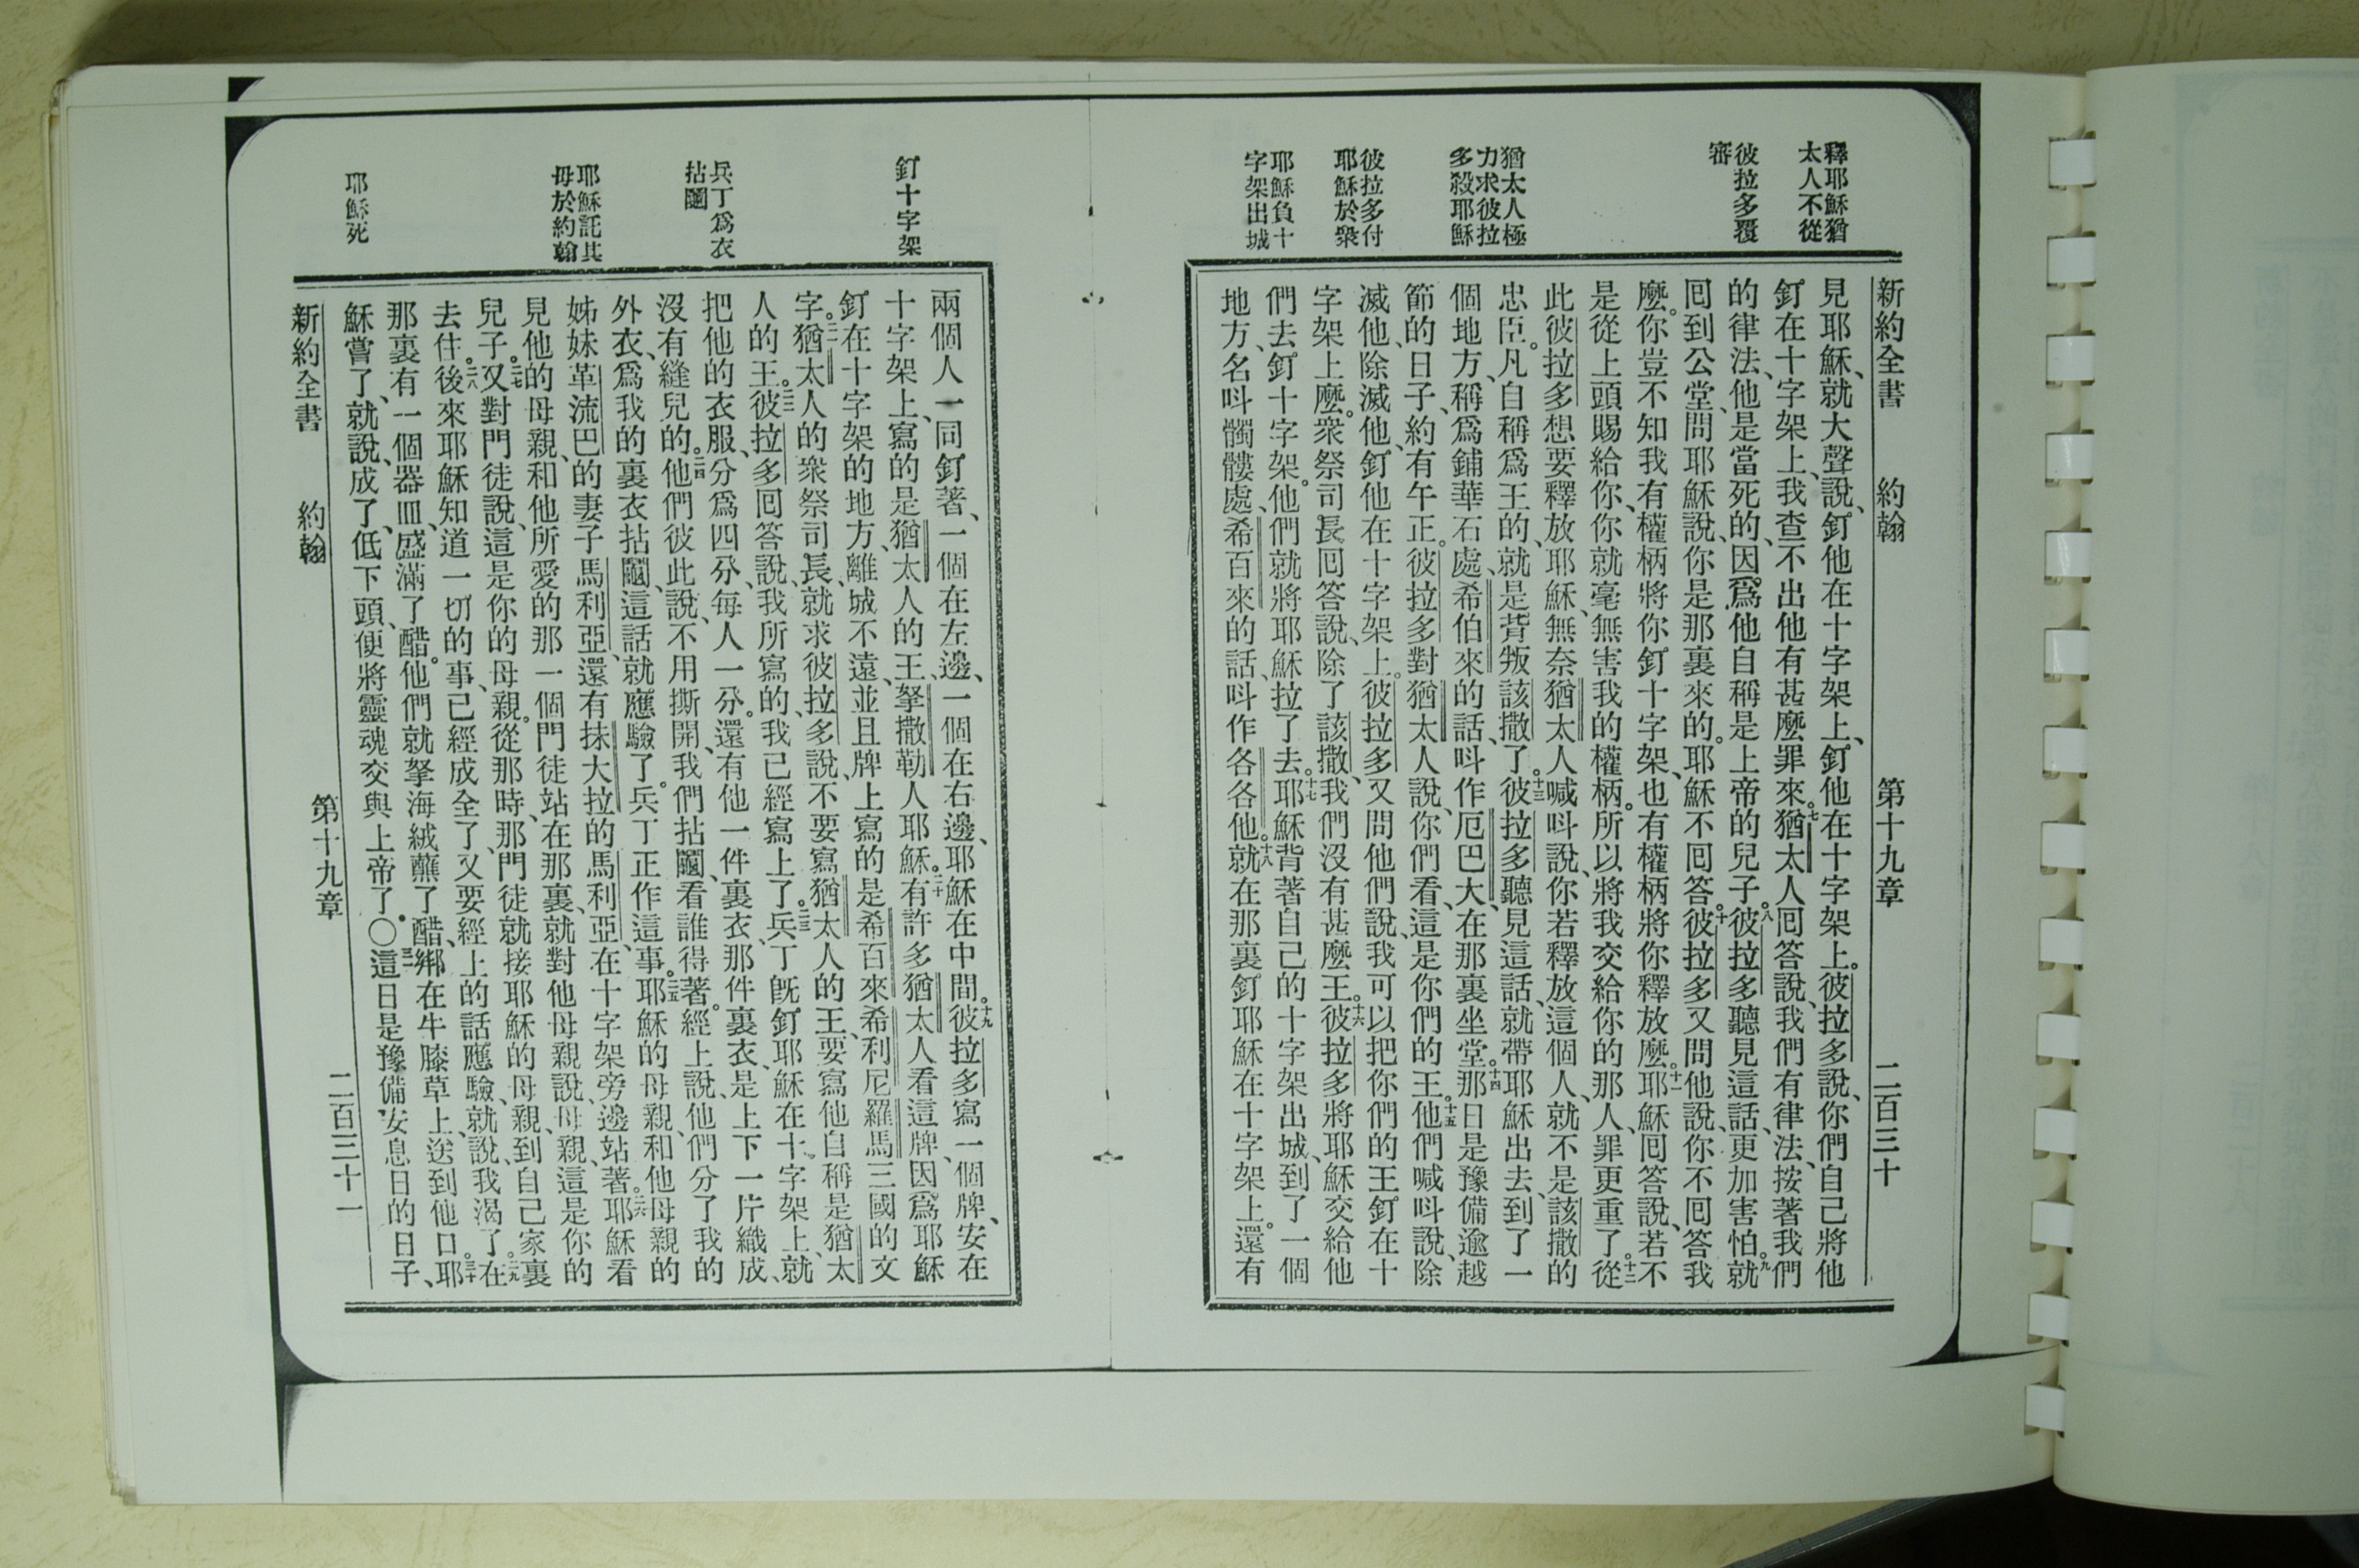 釋耶穌猶
太人不從
彼拉多覆
審
猶太人極
力求彼拉
多殺耶穌
彼拉多付
耶穌於衆
耶穌負十
字架出城
新約全書 約翰 第十九章 二百三十
見耶穌、就大聲說、釘他在十字架上、釘他在十字架上。彼拉多說、你們自己將他
釘在十字架上、我查不出他有甚麼罪來。七猶太人囘答說、我們有律法、按著我們
的律法、他是當死的、因爲他自稱是上帝的兒子。八彼拉多聽見這話、更加害怕。九就
囘到公堂、問耶穌說、你是那裏來的。耶穌不囘答。十彼拉多又問他說、你不囘答我
麼。你豈不知我有權柄將你釘十字架、也有權柄將你釋放麼。十一耶穌囘答說、若不
是從上頭賜給你、你就毫無害我的權柄。所以將我交給你的那人、罪更重了。十二從
此彼拉多想要釋放耶穌、無奈猶太人喊呌說、你若釋放這個人、就不是該撒的
忠臣。凡自稱爲王的、就是背叛該撒了。十三彼拉多聽見這話、就帶耶穌出去、到了一
個地方、稱爲鋪華石處、希伯來的話、呌作厄巴大、在那裏坐堂。十四那日是豫備逾越
節的日子、約有午正。彼拉多對猶太人說、你們看、這是你們的王。十五他們喊呌說、除
滅他、除滅他、釘他在十字架上。彼拉多又問他們說、我可以把你們的王釘在十
字架上麼。衆祭司長囘答說、除了該撒、我們沒有甚麼王。十六彼拉多將耶穌交給他
們去、釘十字架。他們就將耶穌拉了去。十七耶穌背著自己的十字架出城、到了一個
地方、名呌髑髏處、希百來的話、呌作各各他。十八就在那裏釘耶穌在十字架上。還有
釘十字架
兵丁爲衣
拈鬮
耶穌託其
母於約翰
耶穌死
兩個人一同釘著、一個在左邊、一個在右邊、耶穌在中間。十九彼拉多寫一個牌、安在
十字架上、寫的是猶太人的王、拏撒勒人耶穌。二十有許多猶太人看這牌、因爲耶穌
釘在十字架的地方、離城不遠、並且牌上寫的、是希百來希利尼羅馬三國的文
字。二一猶太人的衆祭司長、就求彼拉多說、不要寫猶太人的王、要寫他自稱是猶太
人的王。二二彼拉多囘答說、我所寫的、我已經寫上了。二三兵丁旣釘耶穌在十字架上、就
把他的衣服、分爲四分、每人一分。還有他一件裏衣、那件裏衣、是上下一片織成、
沒有縫兒的。二四他們彼此說、不用撕開、我們拈鬮、看誰得著。經上說、他們分了我的
外衣、爲我的裏衣拈鬮、這話就應驗了。兵丁正作這事。二五耶穌的母親、和他母親的
姊妹革流巴的妻子馬利亞、還有抹大拉的馬利亞、在十字架旁邊站著。二六耶穌看
見他的母親、和他所愛的那一個門徒站在那裏、就對他母親說、母親、這是你的
兒子。二七又對門徒說、這是你的母親。從那時、那門徒就接耶穌的母親、到自己家裏
去住。二八後來耶穌知道一切的事、已經成全了、又要經上的話應驗、就說、我渴了。二九在
那裏有一個器皿、盛滿了醋。他們就拏海絨蘸了醋、綁在牛膝草上、送到他口。三十耶
穌嘗了、就說、成了、低下頭、便將靈魂交與上帝了。○三一這日是豫備安息日的日子、
新約全書 約翰 第十九章 二百三十一